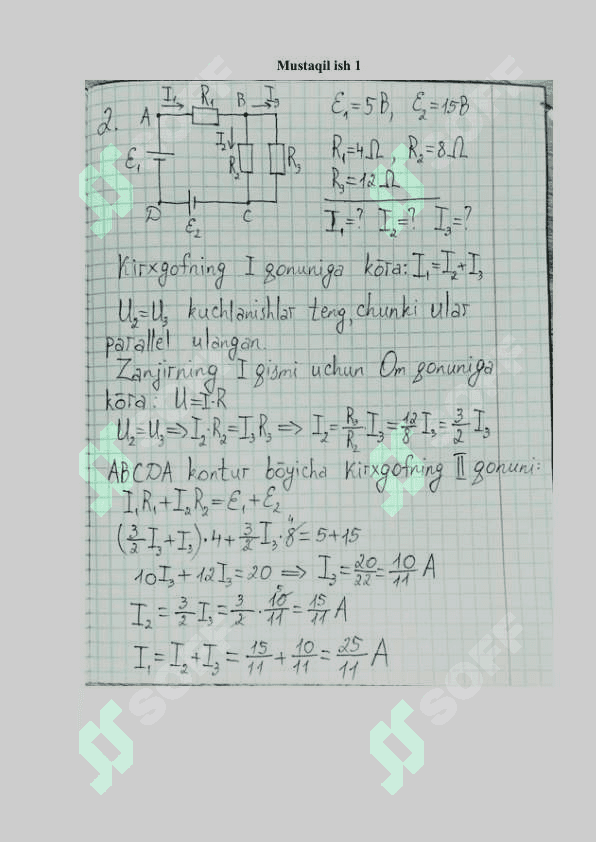 Mustaqil ish 1
2.
I₁ R₁ B I₃
A
I₂
R₂ R₃
Ɛ₁
D C
Ɛ₂
Ɛ₁=5B, Ɛ₂=15B
R₁=4Ω, R₂=8Ω
R₃=12Ω
I₁=? I₂=? I₃=?
Kirxgofning I qonuniga kōra: I₁=I₂+I₃
U₂=U₃ kuchlanishlar teng, chunki ular
parallel ulangan.
Zanjirning I qismi uchun Om qonuniga
kōra: U=I·R
U₂=U₃ ⇒ I₂·R₂=I₃R₃ ⇒ I₂=R₃/R₂·I₃=12/8 I₃=3/2 I₃
ABCDA kontur bōyicha Kirxgofning II qonuni:
I₁R₁+I₂R₂=Ɛ₁+Ɛ₂
(3/2 I₃+I₃)·4+3/2 I₃·8 4=5+15
10I₃+12I₃=20 ⇒ I₃=20/22=10/11 A
I₂=3/2 I₃=3/2·10/11 5=15/11 A
I₁=I₂+I₃=15/11+10/11=25/11 A
SOFF
SOFF
SOFF
SOFF
SOFF
SOFF